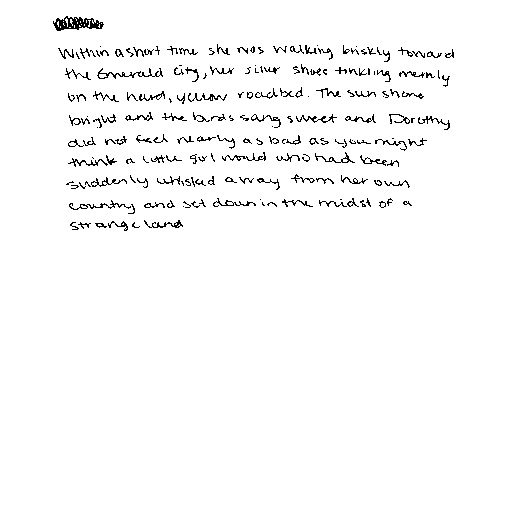 Within a short time she was walking briskly toward
the Emerald City, her silver shoes tinkling merrily
on the hard, yellow roadbed. The sun shone
bright and the birds sang sweet and Dorothy
did not feel nearly as bad as you might
think a little girl would who had been
suddenly whisked away from her own
country and set down in the midst of a
strange land